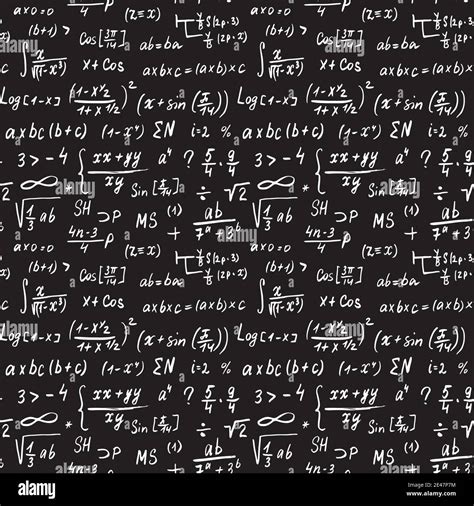 a×0=0 (z≡x) ⅓S(2p·3)
(b+1) > Cos[3π/14] ab=ba ⅙(2p·x) (b+1) > Cos[3π/14] ab=ba
∫ x/√(1-x³) x+Cos a×b×c=(a×b)×c ∫ x/√(1-x³) x+Cos a×b×c=(a×b)×c
Log[1-x] ((1-x½)/(1+x½))² (x+sin(π/14)) Log[1-x] ((1-x½)/(1+x½))² (x+sin(π/14))
a×bc(b+c) (1-x⁴) ΣN i=2 % a×bc(b+c) (1-x⁴) ΣN i=2 %
3>-4 { (xx+yy)/xy a⁴ ? 5/4 · 9/4 3>-4 { (xx+yy)/xy a⁴ ? 5/4 · 9/4
√2 ∞ * Sin[π/14] ÷ √2 ∞ * Sin[π/14] ÷
√(1/3 ab) SH ⊃P MS (1) ab/(7ᵃ+3ᵇ) √(1/3 ab) SH ⊃P MS (1) ab
a×0=0 (4n-3)/4 P (z≡x) + a×0=0 (4n-3)/4 P (z≡x) +
(b+1) > Cos[3π/14] ab=ba (b+1) > Cos[3π/14] ab=ba
∫ x/√(1-x³) x+Cos a×b×c=(a×b)×c ∫ x/√(1-x³) x+Cos a×b×c=(a×b)×c
Log[1-x] ((1-x½)/(1+x½))² (x+sin(π/14)) Log[1-x] ((1-x½)/(1+x½))² (x+sin(π/14))
a×bc(b+c) (1-x⁴) ΣN i=2 % a×bc(b+c) (1-x⁴) ΣN i=2 %
3>-4 { (xx+yy)/xy a⁴ ? 5/4 · 9/4 3>-4 { (xx+yy)/xy a⁴ ? 5/4 · 9/4
√2 ∞ * Sin[π/14] ÷ √2 ∞ * Sin[π/14] ÷
√(1/3 ab) SH ⊃P MS (1) ab/(7ᵃ+3ᵇ) √(1/3 ab) SH ⊃P MS (1) ab
a×0=0 (4n-3)/4 + a×0=0 (4n-3)/4 +
alamy
Image ID: 2E47P7M
www.alamy.com